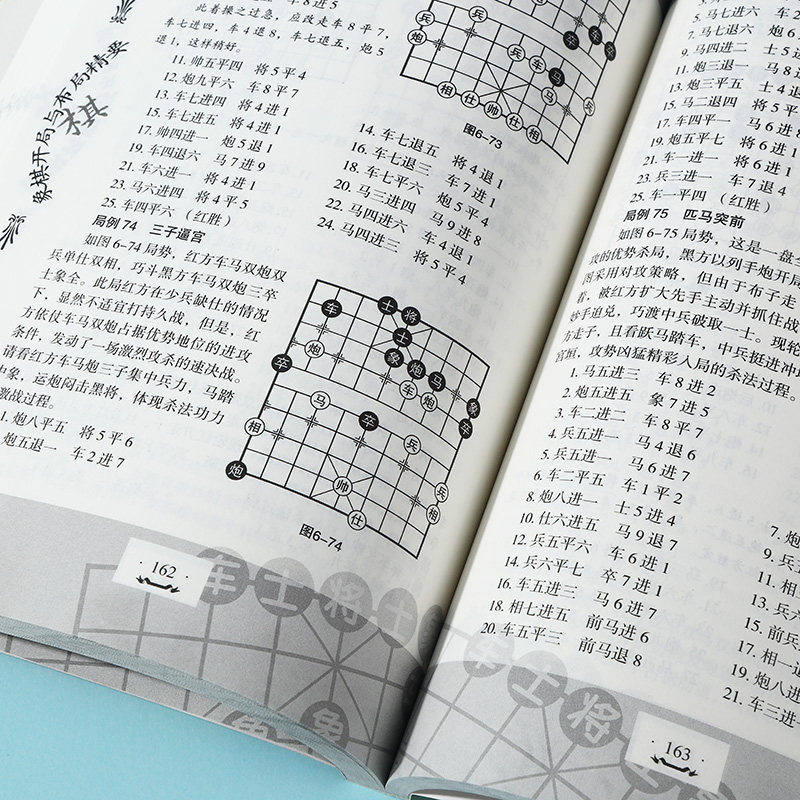 象棋开局与布局精要
棋
车8进5
此着操之过急，应改走车8平7，
车七进四，车4退8，车七进五，炮5
退1，这样稍好。
11. 帅五平四 将5平4
12. 炮九平六 车8平7
13. 车七进四 将4进1
15. 车七进五 将4进1
17. 帅四进一 炮5退1
19. 车四退六 马7进9
21. 车六进一 将4进1
23. 马六进四 将4平5
25. 车四平六 （红胜）
14. 车七退五 将4退1
16. 车七退三 车7进1
18. 车七平六 炮5平4
20. 马三进四 马9进8
22. 马四进六 车4退1
24. 马四进三 将5平4
图6-73
局例 74 三子逼宫
如图6-74局势，红方车马双炮双
兵单仕双相，巧斗黑方车马双炮三卒
士象全。此局红方在少兵缺仕的情况
下，显然不适宜打持久战，但是，红
方依仗车马双炮占据优势地位的进攻
条件，发动了一场激烈攻杀的速决战。
请看红方车马炮三子集中兵力，马踏
中象，运炮闷击黑将，体现杀法功力
激战过程。
1. 炮八平五 将5平6
炮五退一 车2进7
士 将
车 士
炮 象 炮 马
卒 车 炮 象
马 卒 兵 卒
相
炮 帅 兵
仕 相
图6-74
162
5. 马七进六
7. 马七退六 炮6
9. 马四进二 士5
11. 炮三退一 马8
13. 炮三平五 士4
15. 马二退四 将5平
17. 车四平一 马6进
19. 炮五平七 将6进
21. 车一进一 将6进1
23. 兵三进一 车7退4
25. 车一平四 （红胜）
局例 75 匹马突前
如图6-75局势，这是一盘
攻的优势杀局，黑方以列手炮开局
图采用对攻策略，但由于布子走
着，被红方扩大先手主动并抓住战
妙手追兑，巧渡中兵破取一士。现轮
方走子，且看跃马踏车、中兵挺进冲
宫垣，攻势凶猛精彩入局的杀法过程。
1. 马五进三 车8进2
2. 炮五进五 象7进5
3. 车二进二 车8平7
4. 兵五进一 马4退6
5. 兵五进一 马6进7
6. 车二平五 车1平2
8. 炮八进一 士5进4
10. 仕六进五 马9退7
12. 兵五平六 车6进1
14. 兵六平七 卒7进1
16. 车五进三 马6进7
18. 相七进五 前马进6
20. 车五平三 前马退8
7. 炮
9. 兵
11. 相
13. 兵六
15. 前兵
17. 相一
19. 炮八进
21. 车三进一
163